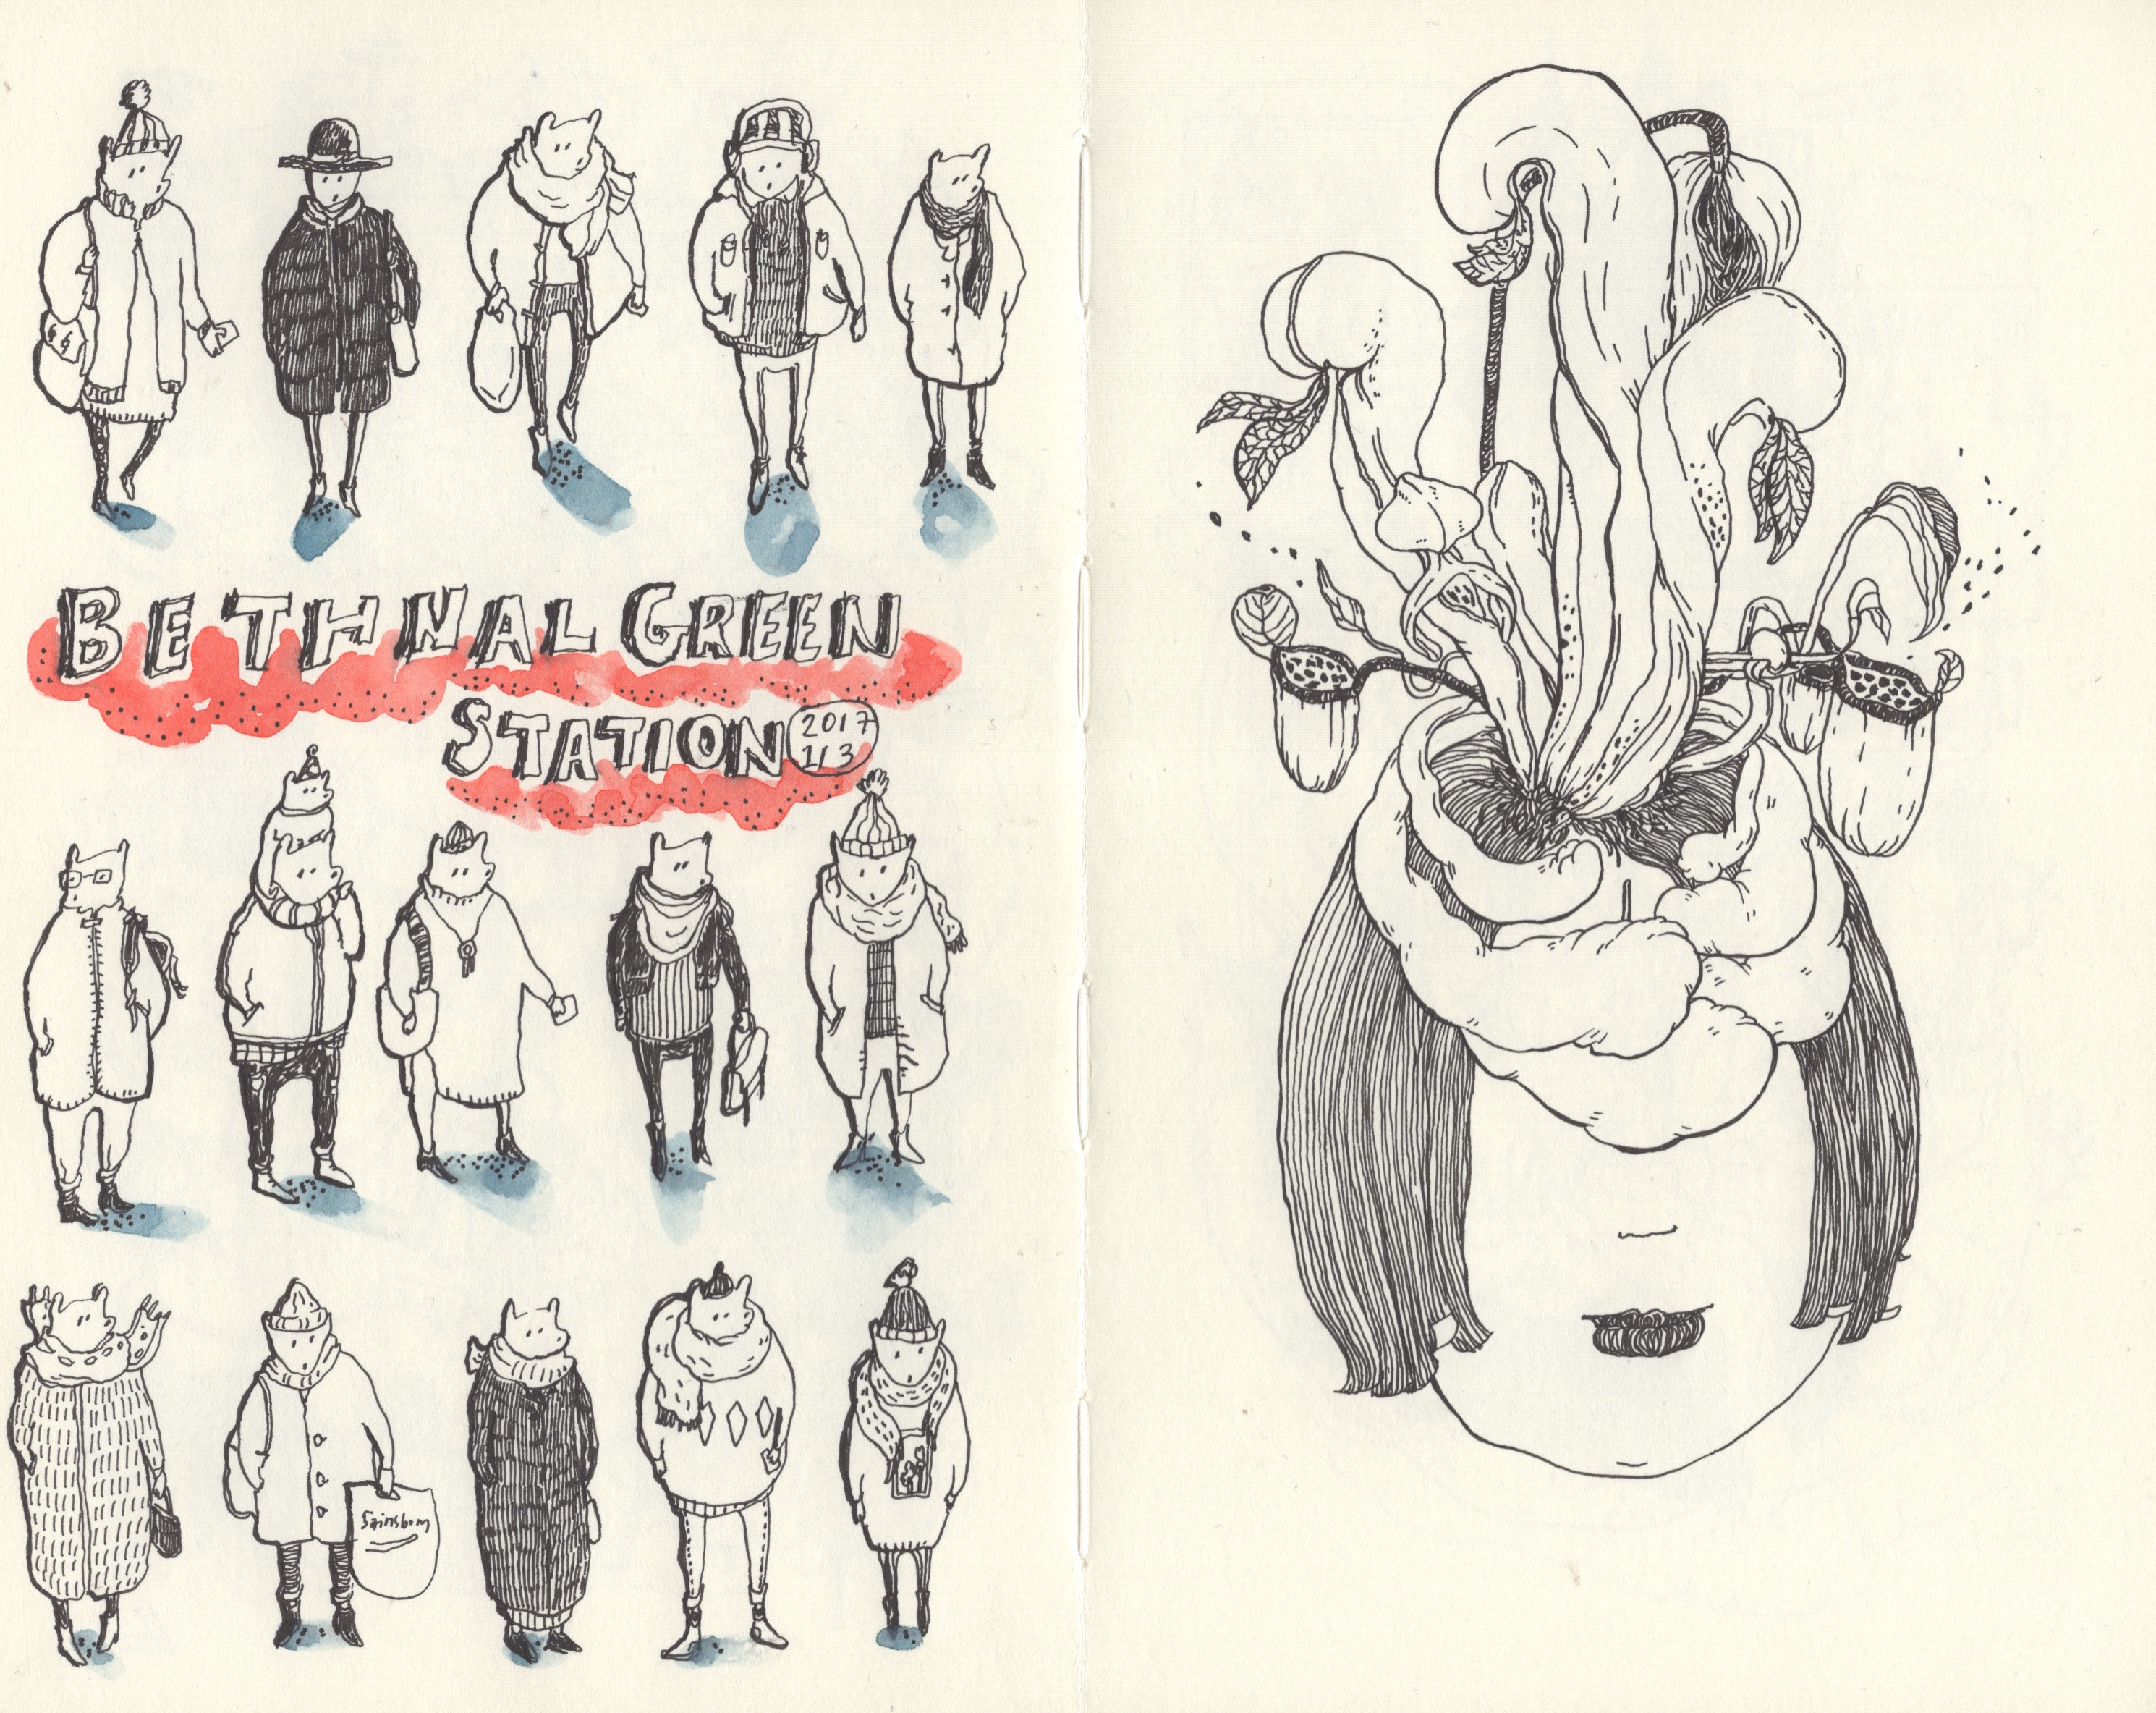 BETHNAL GREEN
STATION 2017
1/3
Sainsbury